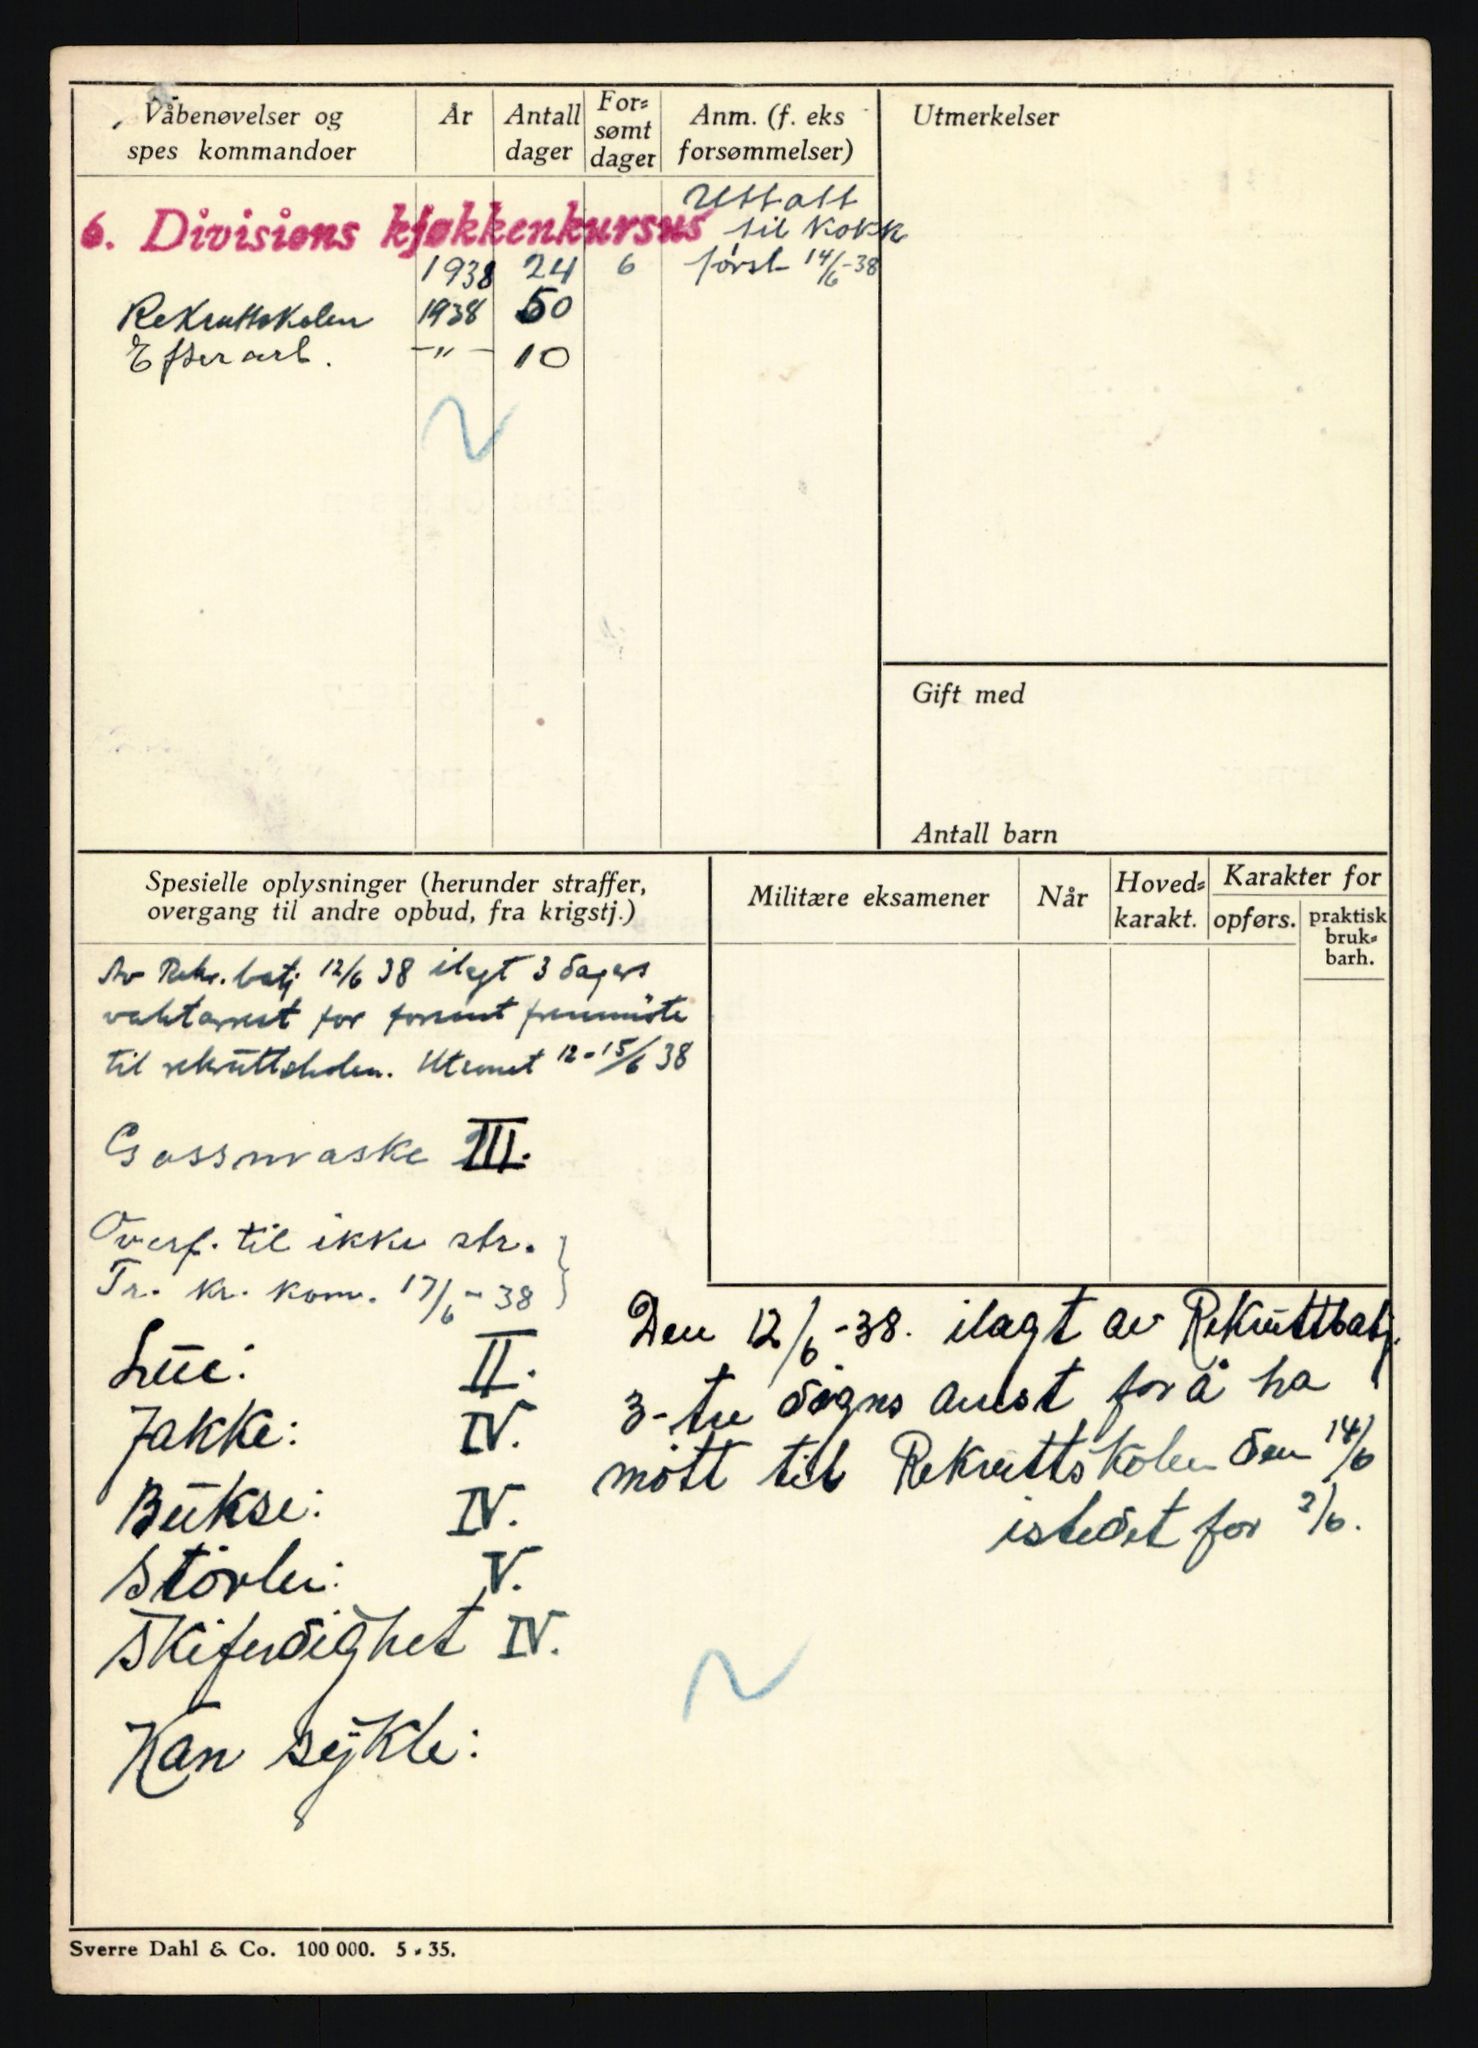 Våbenøvelser og
spes kommandoer
År
Antall
dager
For=
sømt
dager
Anm. (f. eks
forsømmelser)
Utmerkelser
6. Divisions kjøkkenkursus
Uttatt
til kokk
først 14/6-38
1938 24 6
Rekruttskolen 1938 60
Efterarb. -"- 10
Gift med
Antall barn
Spesielle oplysninger (herunder straffer,
overgang til andre opbud, fra krigstj.)
Militære eksamener
Når
Hoved=
karakt.
Karakter for
opførs.
praktisk
bruk=
barh.
Av Rekr.batj 12/6 38 ilagt 3 dagers
vaktarrest for forsent fremmöte
til rekrüttskolen. Utsonet 12-15/6 38
Gassmaske III.
Overf. til ikke str.
Tr. kr. kom. 17/6-38
Lüe: II.
Jakke: IV.
Bükse: IV.
Störler: V.
Skiferdighet IV.
Kan sykle:
Den 12/6-38. ilagt av Rekrüttbatj.
3-tre dögns arrest for å ha
mött til Rekrüttskolen den 14/6
istedet for 2/6.
Sverre Dahl & Co. 100 000. 5-35.